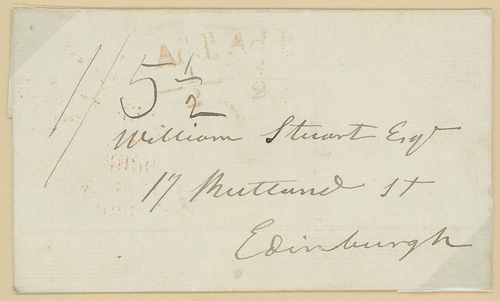 1/5½
½
William Stuart Esqr
17 Rutland St
Edinburgh